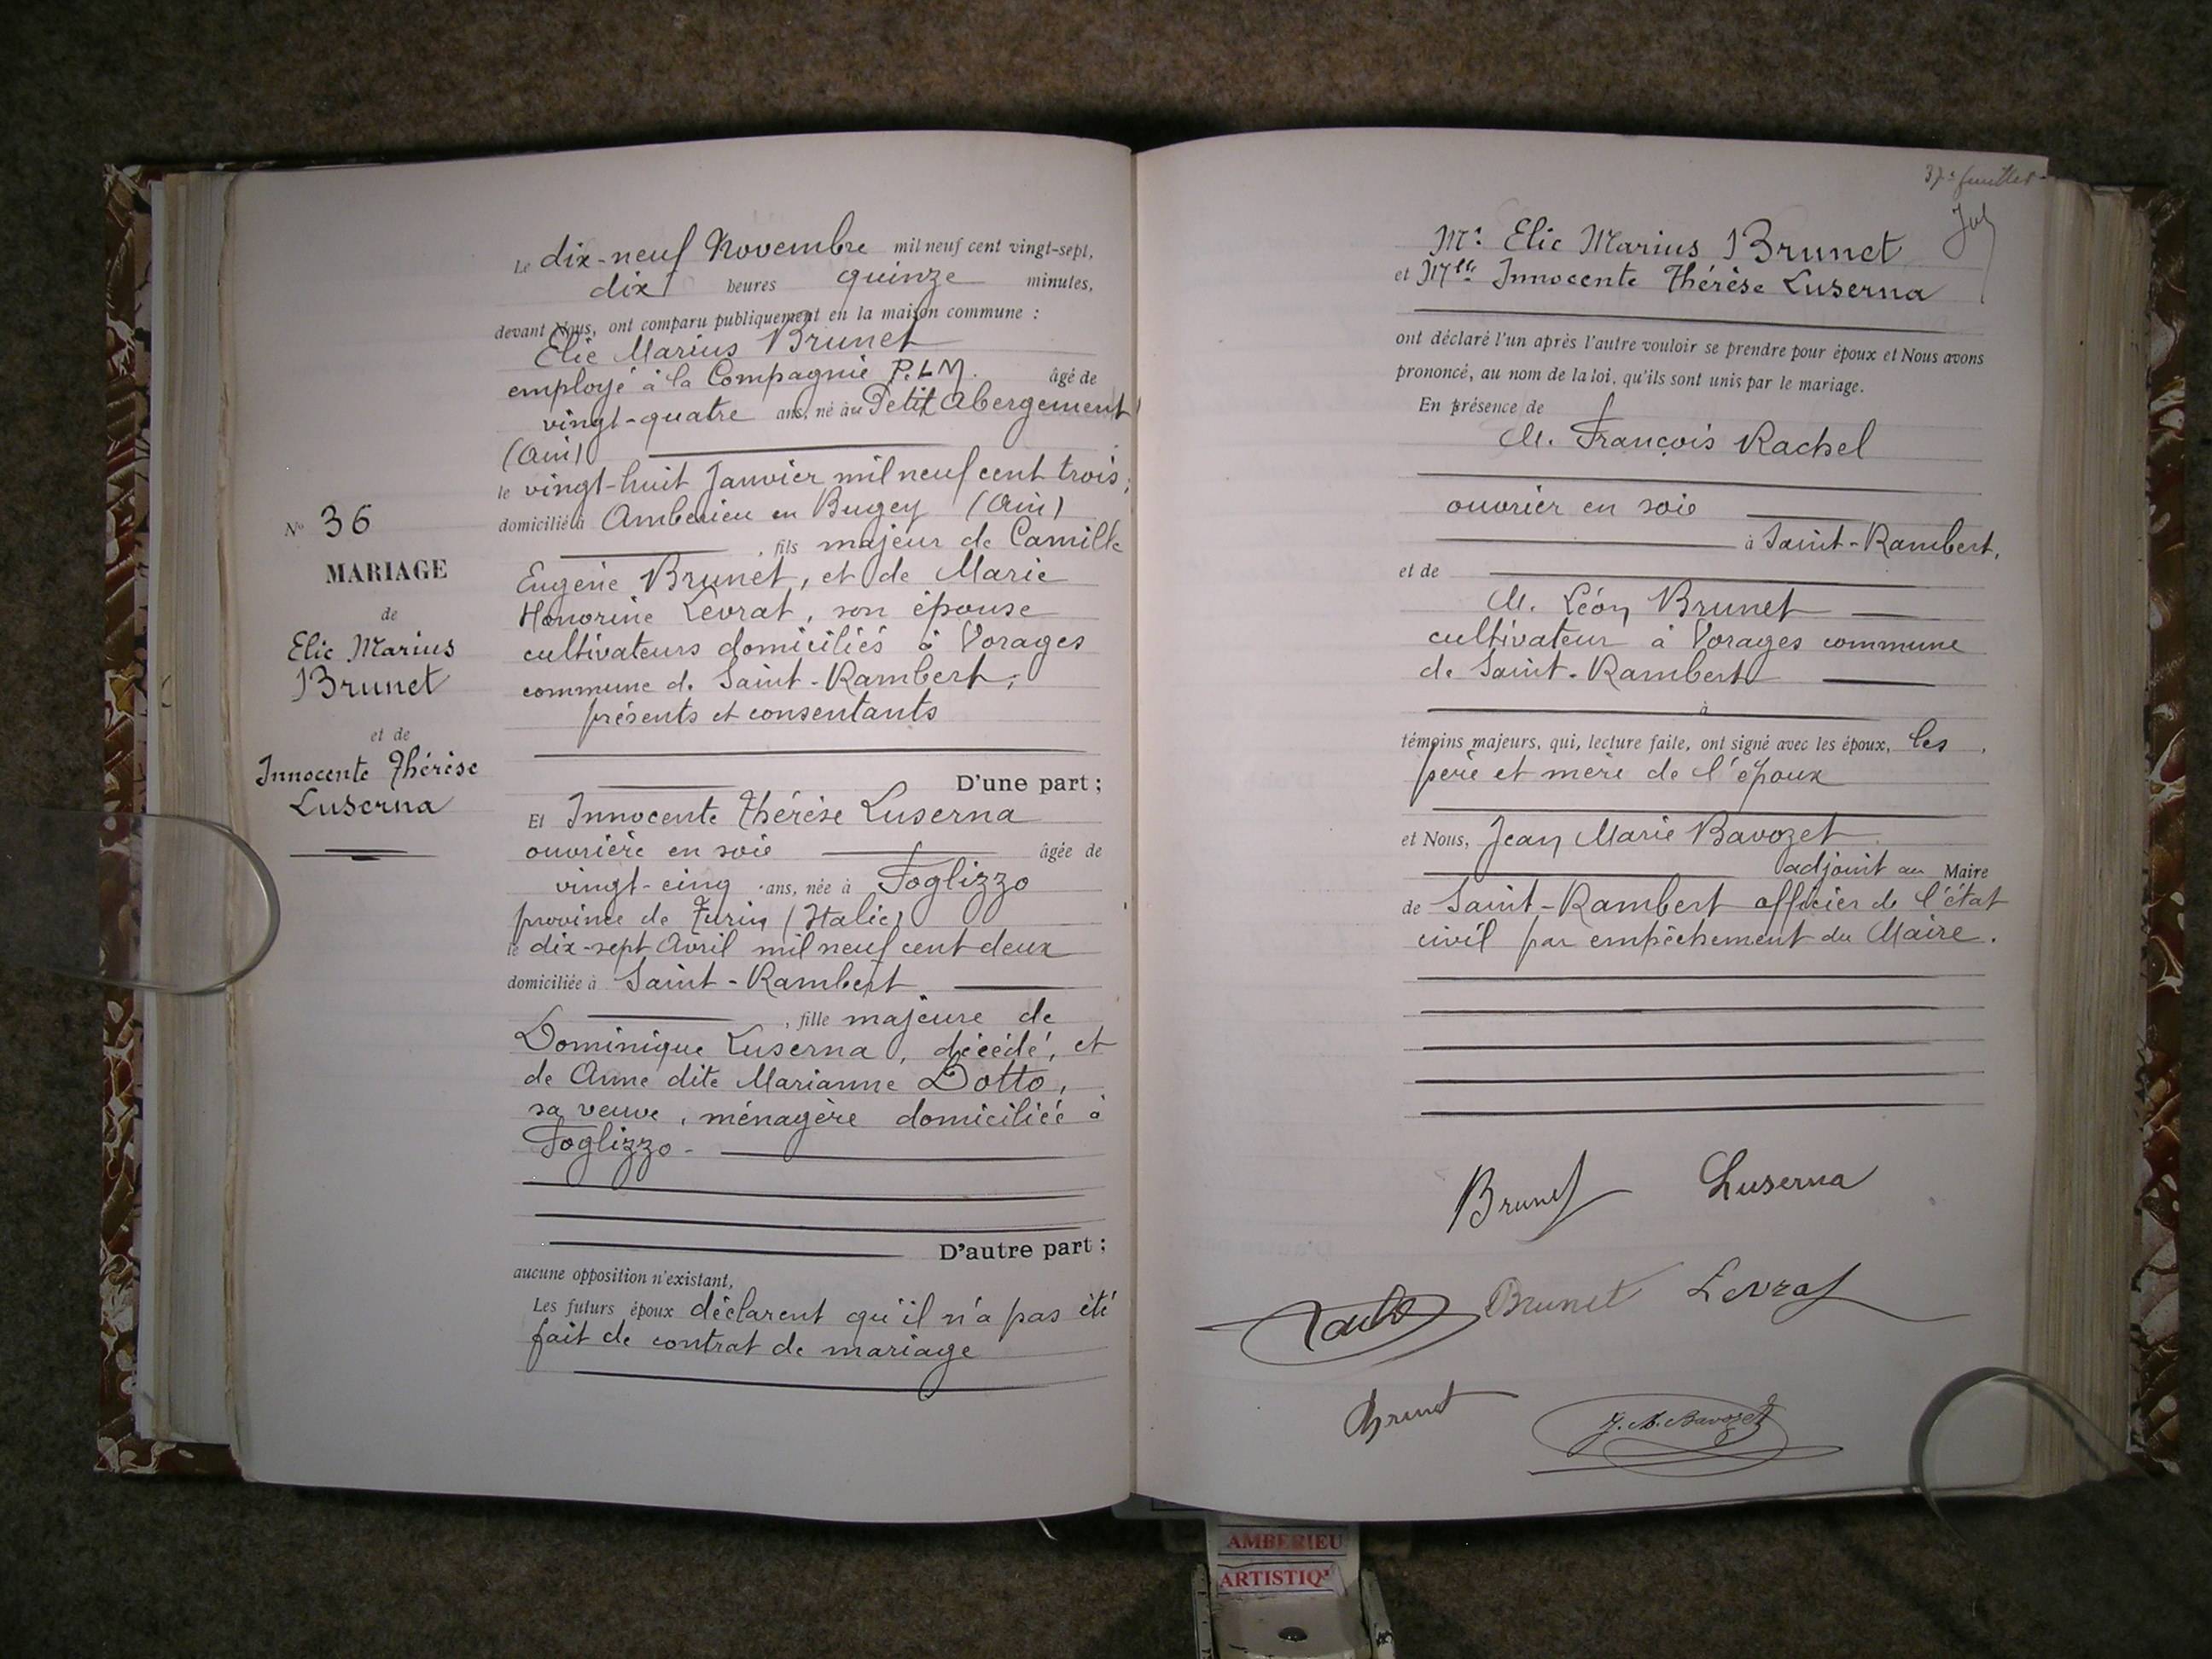 N° 36
MARIAGE
de
Elie Marius
Brunet
et de
Innocente Thérèse
Luserna
Le dix-neuf Novembre mil neuf cent vingt-sept,
dix heures quinze minutes,
devant Nous, ont comparu publiquement en la maison commune :
Elie Marius Brunet
employé à la Compagnie P.L.M. âgé de
vingt-quatre ans, né au Petit Abergement
(Ain)
le vingt-huit Janvier mil neuf cent trois,
domicilié à Amberieu en Bugey (Ain)
, fils majeur de Camille
Eugene Brunet, et de Marie
Honorine Levrat, son épouse
cultivateurs domiciliés à Vorages
commune de Saint-Rambert,
présents et consentants
D'une part ;
Et Innocente Thérèse Luserna
ouvrière en soie âgée de
vingt-cinq ans, née à Foglizzo
province de Turin (Italie)
le dix-sept Avril mil neuf cent deux
domiciliée à Saint-Rambert
, fille majeure de
Dominique Luserna, décédé, et
de Anne dite Marianne Dotto,
sa veuve, ménagère domiciliée à
Foglizzo.
D'autre part ;
aucune opposition n'existant,
Les futurs époux déclarent qu'il n'a pas été
fait de contrat de mariage
37e feuillet
Mr Elie Marius Brunet
et Mlle Innocente Thérèse Luserna
ont déclaré l'un après l'autre vouloir se prendre pour époux et Nous avons
prononcé, au nom de la loi, qu'ils sont unis par le mariage.
En présence de
M. François Rachel
ouvrier en soie
à Saint-Rambert,
et de
M. Léon Brunet
cultivateur à Vorages commune
de Saint-Rambert
à
témoins majeurs, qui, lecture faite, ont signé avec les époux, les
père et mère de l'époux
et Nous, Jean Marie Bavozet
adjoint au Maire
de Saint-Rambert officier de l'état
civil par empêchement du Maire.
Brunet Luserna
Brunet Levrat
Brunet J. M. Bavozet
AMBERIEU
ARTISTIQ